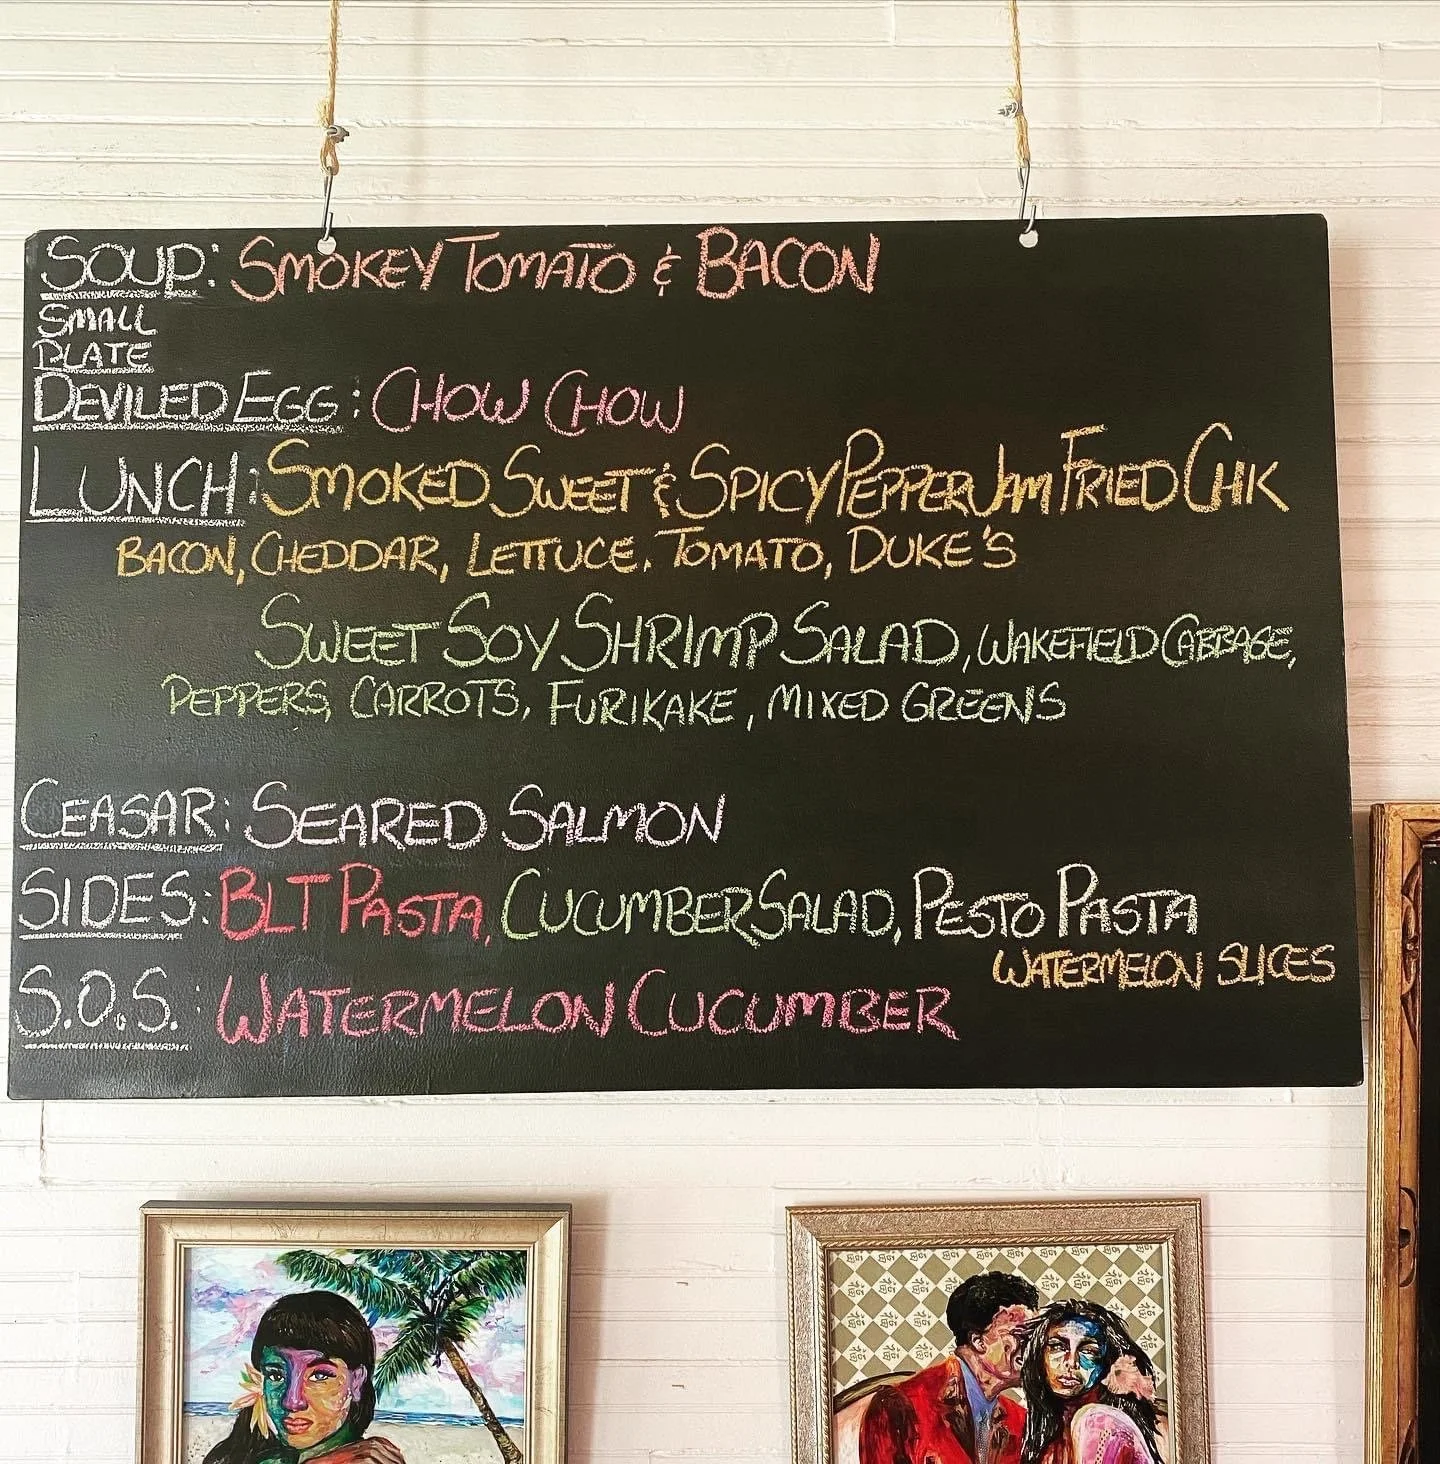 SOUP: SMOKEY TOMATO & BACON
SMALL
PLATE
DEVILED EGG: CHOW CHOW
LUNCH: SMOKED SWEET & SPICY PEPPER JAM FRIED CHIK
BACON, CHEDDAR, LETTUCE, TOMATO, DUKE'S
SWEET SOY SHRIMP SALAD, WAKEFIELD CABBAGE,
PEPPERS, CARROTS, FURIKAKE, MIXED GREENS
CEASAR: SEARED SALMON
SIDES: BLT PASTA, CUCUMBER SALAD, PESTO PASTA
WATERMELON SLICES
S.O.S.: WATERMELON CUCUMBER